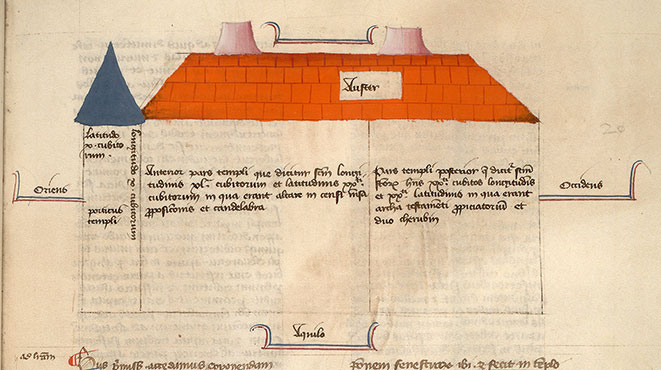 Auster
latitudo
x. cubito
rum.
longitudo xx cubitorum
Oriens
porticus
templi
Anterior pars templi que dicitur scm̃ longi
tudinis xl. cubitorum et latitudinis xxti
cubitorum in qua erant altare incensi mẽsa
p̃posicionis et candelabra
Pars templi posterior q̃ dicit᷑ sctm̃
hñs xxti cubitos longitudinis
et xxti latitudinis in qua erant
archa testamẽti p̃piciatorium et
duo cherubin
Occidens
Aquilo
accedamus
ibi & fecit in templo